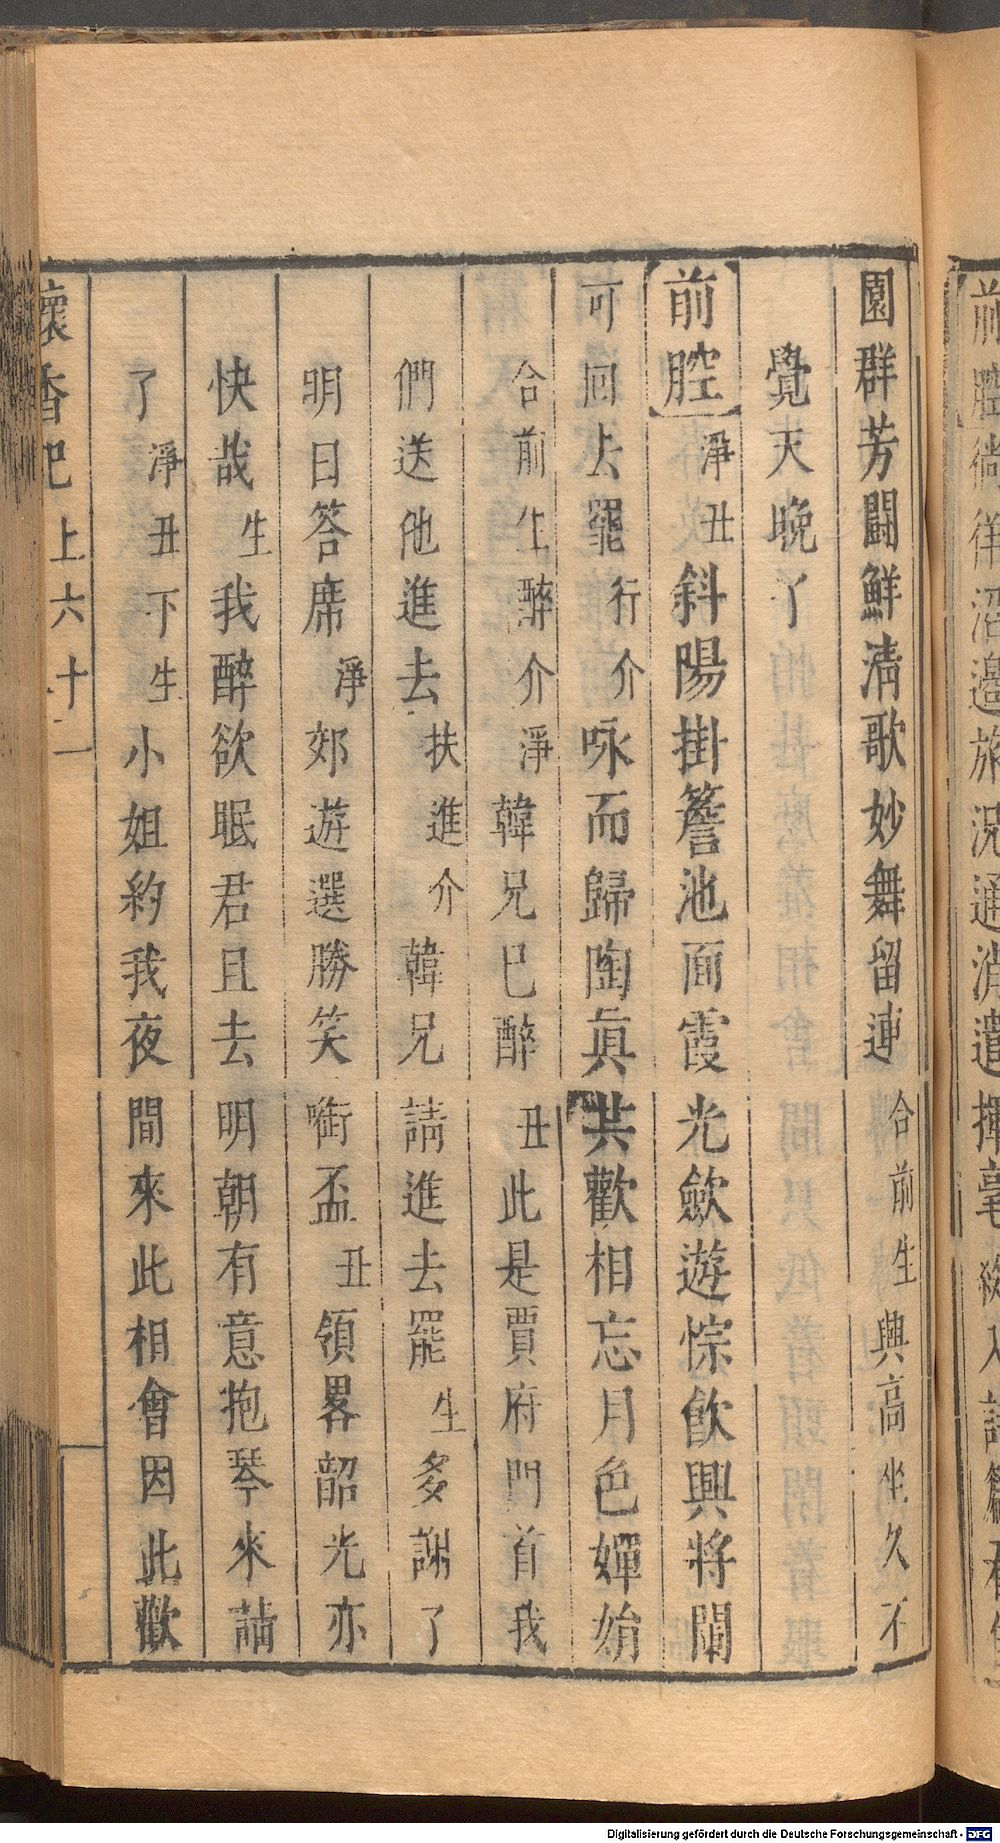 園群芳闘鮮清歌妙舞留連合前生興高坐久不
覺天晚了
前腔淨丑斜陽掛簷池面霞光歛遊悰飲興將闌
可回去罷行介咏而歸陶眞共歡相忘月色嬋娟
合前生醉介淨韓兄已醉丑此是賈府門首我
們送他進去扶進介韓兄請進去罷生多謝了
明日答席淨郊遊選勝笑啣盃丑領畧韶光亦
快哉生我醉欲眠君且去明朝有意抱琴來請
了淨丑下生小姐約我夜間來此相會因此歡
懷香記上六十一
前腔徜徉沼邊旅況通消遣揮毫
Digitalisierung gefördert durch die Deutsche Forschungsgemeinschaft - DFG